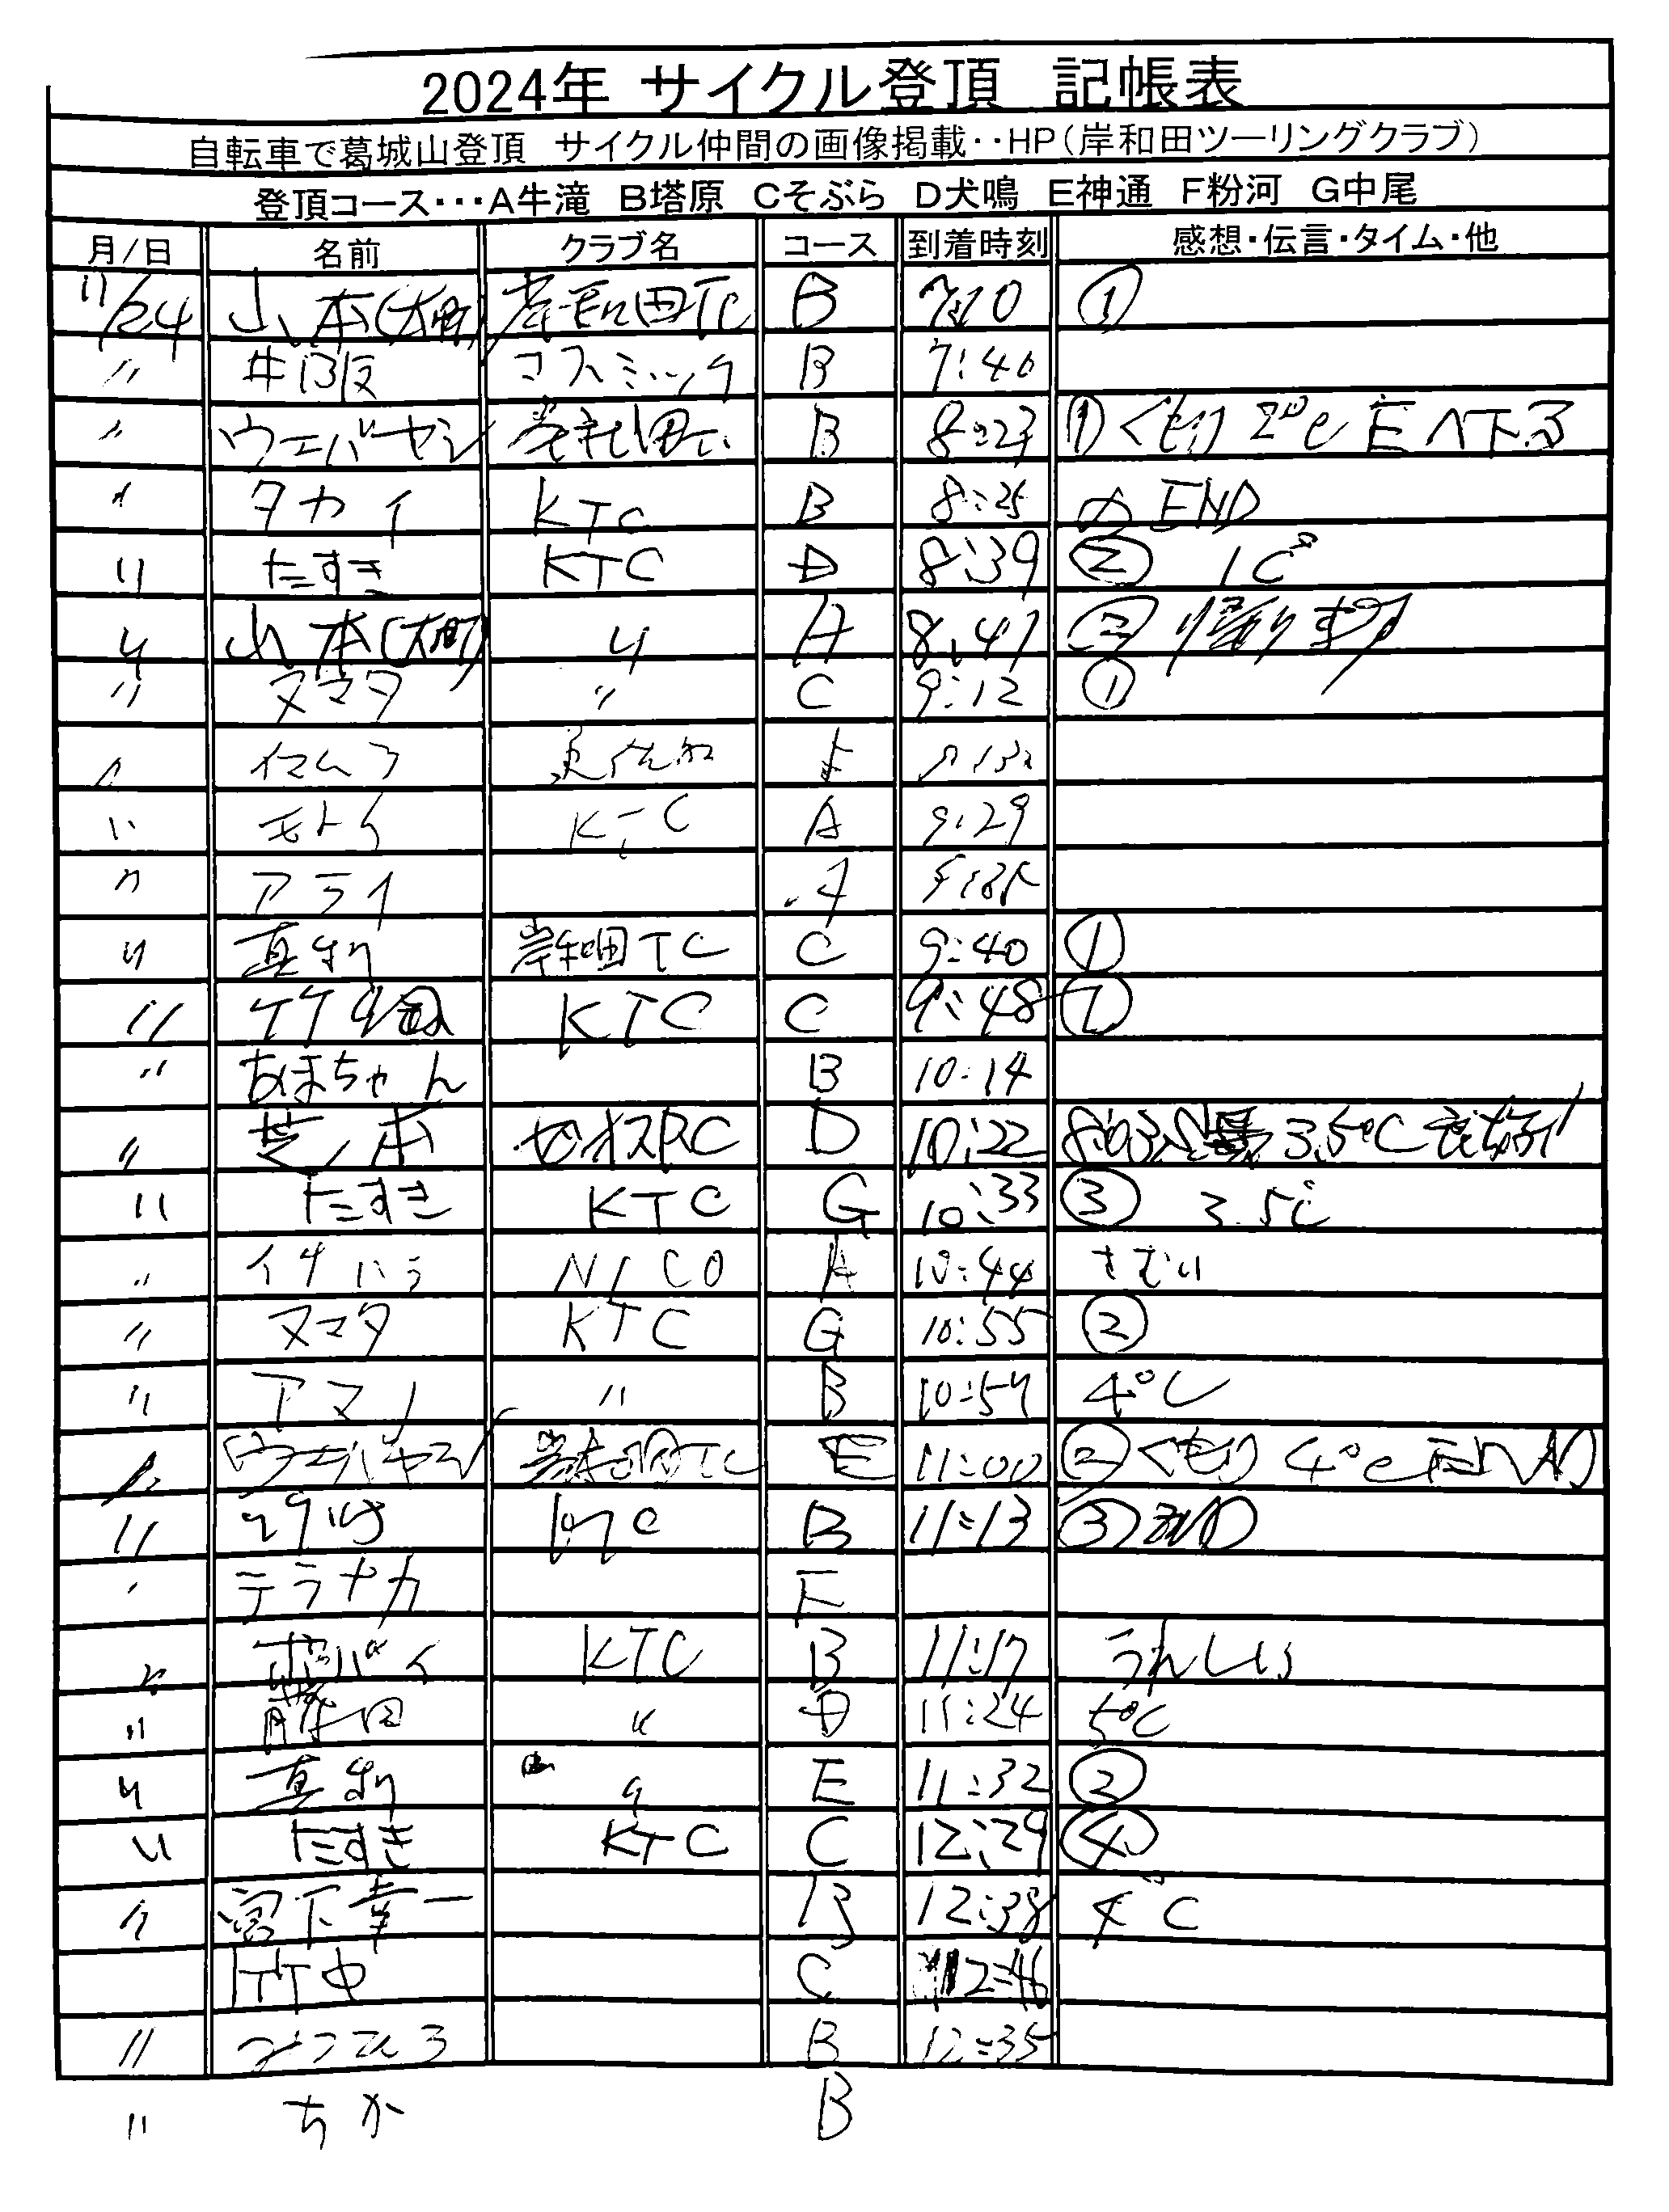 2024年 サイクル登頂 記帳表
自転車で葛城山登頂 サイクル仲間の画像掲載‥HP(岸和田ツーリングクラブ)
登頂コース･･･A牛滝 B塔原 Cそぶら D犬鳴 E神通 F粉河 G中尾
月/日 名前 クラブ名 コース 到着時刻 感想・伝言・タイム・他
11/24 山本(大町) 岸和田TC B 7:10 ①
〃 井阪 コスミック B 7:40
〃 ウエバヤシ 岸和田TC B 8:23 ① くもり 2℃ Eへ下る
〃 タカイ KTC B 8:25 END
〃 たすき KTC D 8:39 ② 1C°
〃 山本(大町) 〃 A 8:47 ② 帰ります
〃 ヌマタ 〃 C 9:12 ①
〃 イマムラ
〃 モトイ KTC A 9:29
〃 アライ A
〃 真利 岸和田TC C 9:40 ①
〃 KTC C 9:48 ①
〃 あまちゃん B 10:14
〃 芝ノ本 セオスRC D 10:22 3.5℃
〃 たすき KTC G 10:33 ③ 3.5℃
〃 イケハラ NICO A 10:44 さむい
〃 ヌマタ KTC G 10:55 ②
〃 アマノ 〃 B 10:57 4℃
〃 ウエバヤシ 岸和田TC E 11:00 ② くもり 4℃
〃 B 11:13 ③ END
〃 テラナカ F
〃 ポパイ KTC B 11:17 うれしい
〃 藤田 〃 D 11:24 5℃
〃 真利 〃 E 11:32 ②
〃 たすき KTC C 12:29 ④
〃 宮下幸一 B 12:38 4℃
竹中 C 12:46
〃 B 12:35
〃 ちか B